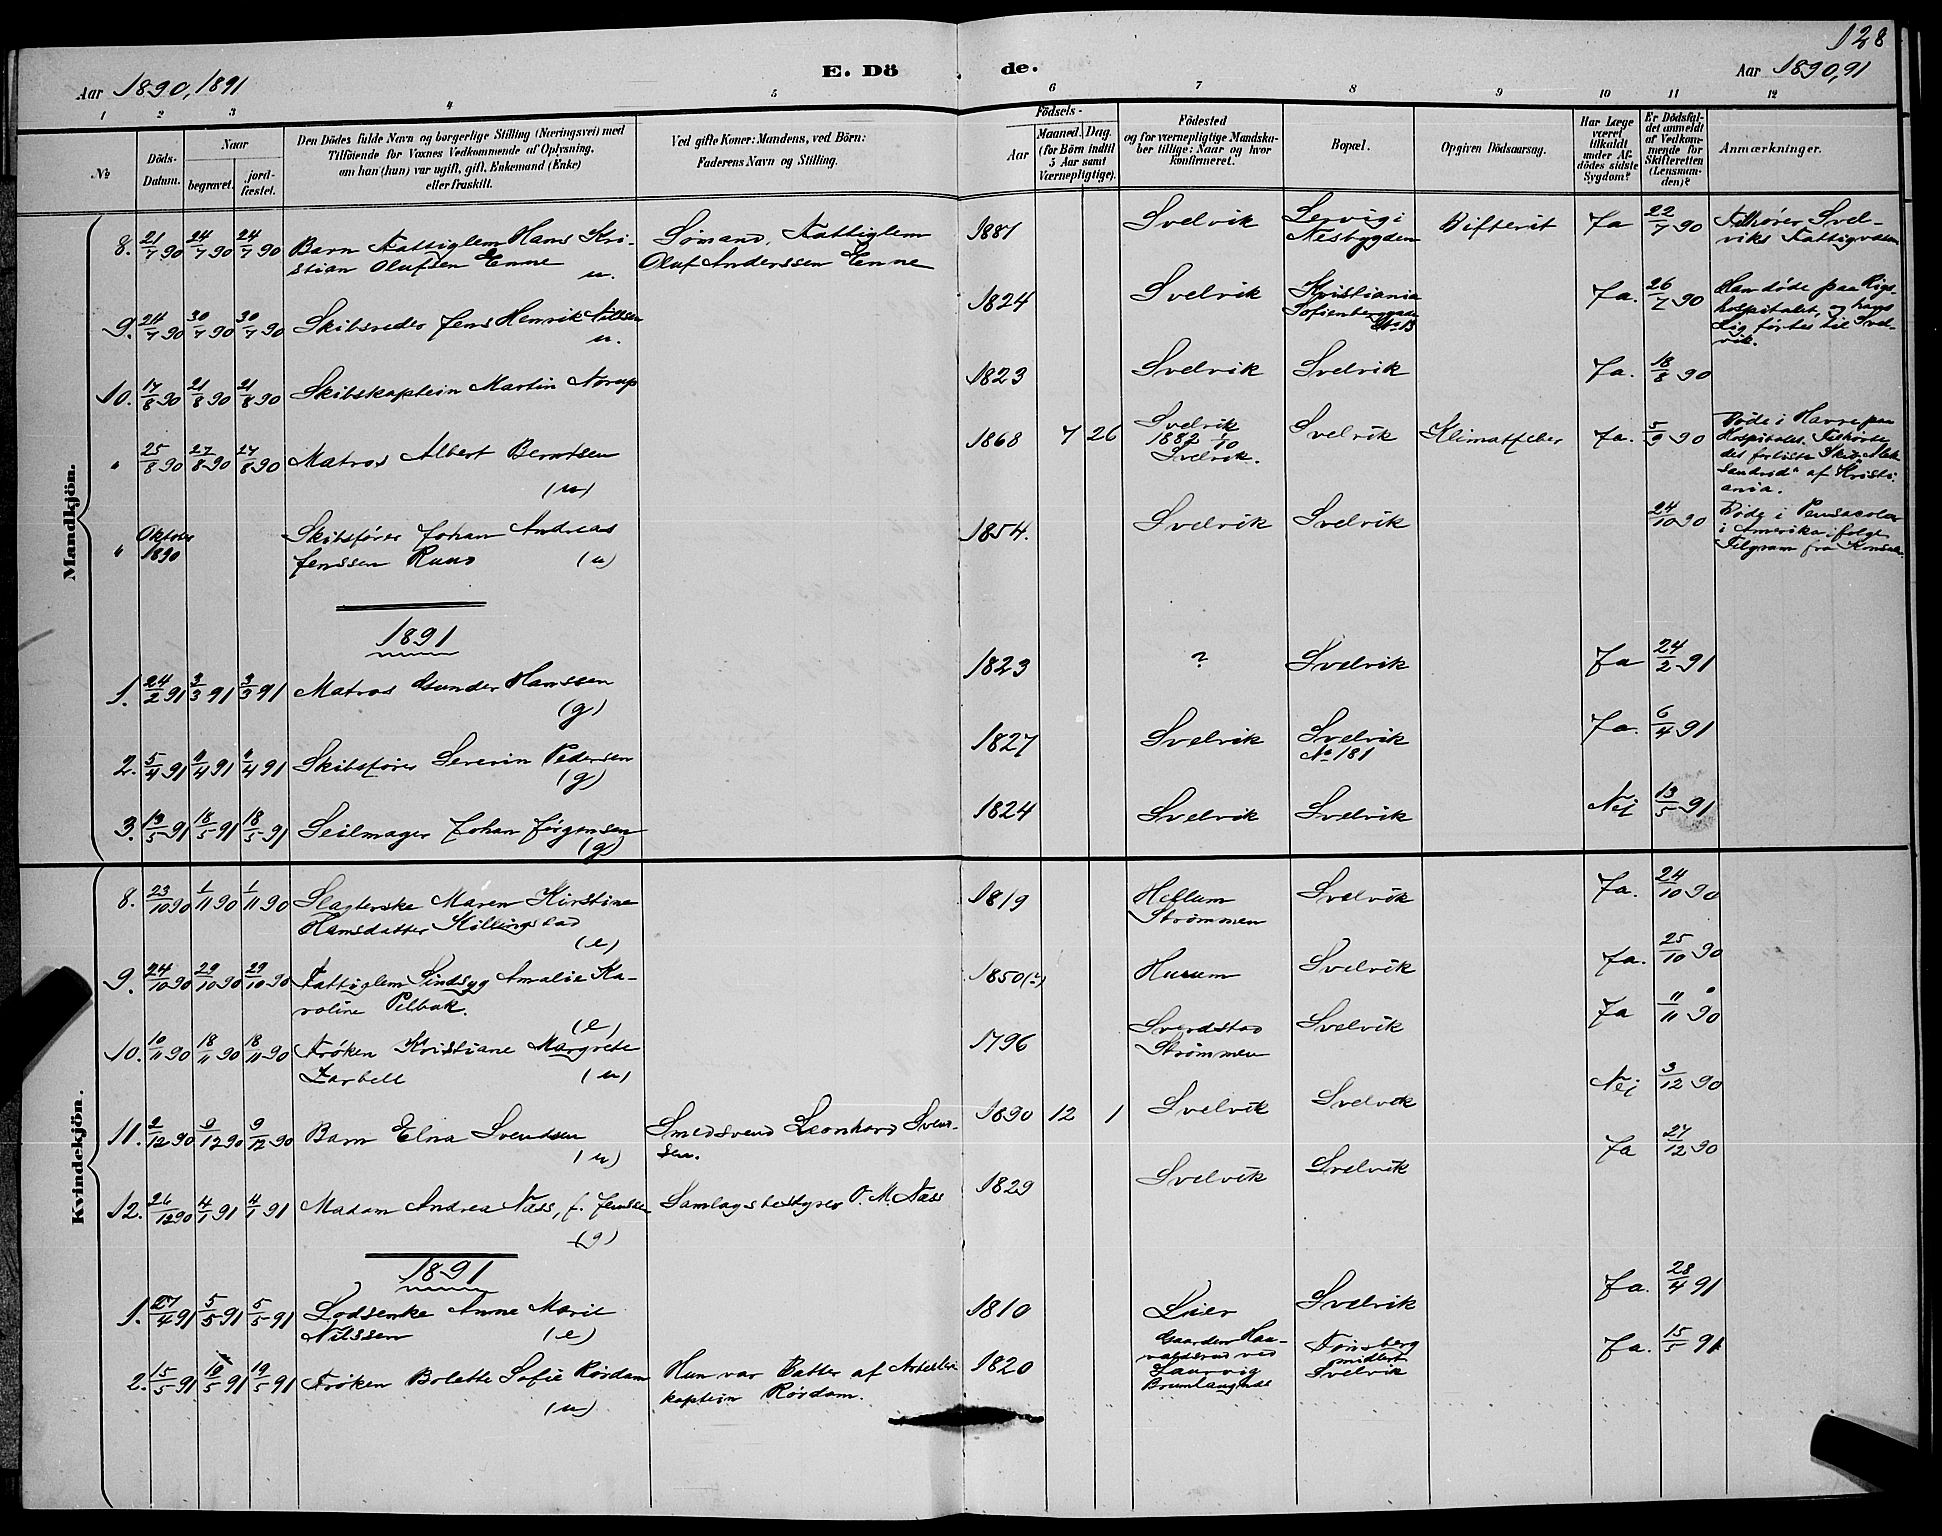 128
Aar 1890, 1891
E. Dö de.
Aar 1890, 91
1 2 3 4 5 6 7 8 9 10 11 12
No
Döds-
Datum.
Naar
begravet.
jord-
fæstet.
Den Dödes fulde Navn og borgerlige Stilling (Næringsvei) med
Tilföiende for Voxnes Vedkommende af Oplysning,
om han (hun) var ugift, gift, Enkemand (Enke)
eller fraskilt.
Ved gifte Koner: Mandens, ved Börn:
Faderens Navn og Stilling.
Födsels-
Aar
Maaned. Dag.
(for Börn indtil
5 Aar samt
Værnepligtige).
Födested
og for værnepligtige Mandska-
ber tillige: Naar og hvor
konfirmeret.
Bopæl.
Opgiven Dödsaarsag.
Har Læge
været
tilkaldt
under Af-
dödes sidste
Sygdom?
Er Dödsfal-
det anmeldt
af Vedkom-
mende for
Skifteretten
(Lensman-
den)?
Anmærkninger.
Mandkjön.
8. 21/7 90 24/7 90 24/7 90 Barn Fattiglem Hans Kri-
stian Olufsen Enne u.
Sømand, Fattiglem
Oluf Anderssen Enne
1881 Svelvik Lervig i
Nesbygden
Difterit Ja 22/7 90 Tilhører Svel-
viks Fattigvæsen
9. 24/7 90 30/7 90 30/7 90 Skibsreder Jens Henrik Nilssen
u.
1824 Svelvik Kristiania
Ja. 26/7 90 Han døde paa Rigs-
hospitalet, og hans
Lig førtes til Svel-
vik.
10. 17/8 90 21/8 90 21/8 90 Skibskaptein Martin Norup
1823 Svelvik Svelvik Ja. 18/8 90
" 25/8 90 27/8 90 27/8 90 Matros Albert Berntsen
(u)
1868 7 26 Svelvik
1882 1/10
Svelvik.
Svelvik Klimatfeber Ja. 5/9 90 Døde i Havre paa
Hospitalet. Tilhørte
det forliste Skib
af Kristi-
ania.
" Oktober
1890
Skibsfører Johan Andreas
Jenssen Ruud (u)
1854. Svelvik Svelvik 24/10 90 Døde i Pensacola
i Amerika ifølge
Telgram fra Konsul.
1891
1. 24/2 91 3/3 91 3/3 91 Matros Gunder Hanssen
(g)
1823 ? Svelvik Ja 24/2 91
2. 5/4 91 9/4 91 9/4 91 Skibsfører Severin Pedersen
(g)
1827 Svelvik Svelvik
No 181
Ja. 6/4 91
3. 13/5 91 18/5 91 18/5 91 Seilmager Johan Jørgensen
(g)
1824 Svelvik Svelvik Nej 13/5 91
Kvindekjön.
8. 23/10 90 1/11 90 1/11 90 Slagterske Maren Kirstine
Hansdatter Killingstad
(e)
1819 Hellum
Strømmen
Svelvik Ja. 24/10 90
9. 24/10 90 29/10 90 29/10 90 Fattiglem Sindsyg Amalie Ka-
roline Pilbak.
(e)
1850(?) Hurum Svelvik Ja. 25/10 90
10. 10/11 90 18/11 90 18/11 90 Frøken Kristiane Margrete
Zarbell (u)
1796 Sverdstad
Strømmen
Svelvik Ja 11/11 90
11. 2/12 90 9/12 90 9/12 90 Barn Elna Svendsen
(u)
Smedsvend Leonhard Svend-
sen.
1890 12 1 Svelvik Svelvik Nej 3/12 90
12. 26/12 90 4/1 91 4/1 91 Madam Andrea Næss, f. Jenssen
(g)
Samlagsbestyrer O. M. Næss
1829 Svelvik Svelvik Ja 27/12 90
1891
1. 27/4 91 5/5 91 5/5 91 Lodsenke Anne Marie
Nilssen (e)
1810 Lier Svelvik Ja. 28/4 91
2. 15/5 91 19/5 91 19/5 91 Frøken Bolette Sofie Rördam
(u)
Hun var Datter af Artilleri
kaptein Rördam.
1820 Gaarden Hau-
ved
Laurvig
Brunlangnæs
Tönsberg
midlert.
Svelvik
Ja. 15/5 91